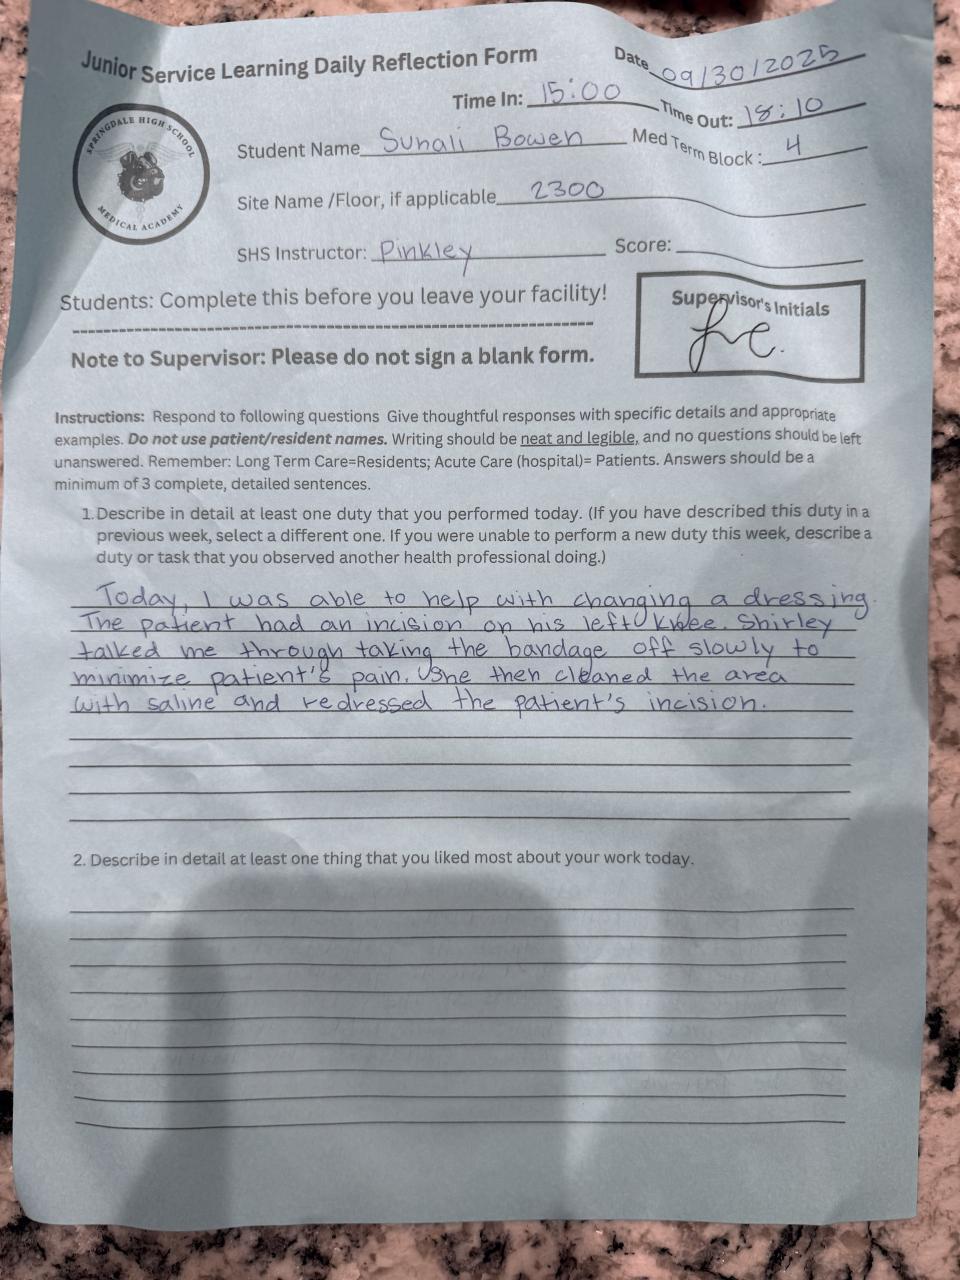 Junior Service Learning Daily Reflection Form
Date 09/30/2025
Time In: 15:00
Time Out: 18:10
SPRINGDALE HIGH SCHOOL
MEDICAL ACADEMY
Student Name Sunali Bowen
Med Term Block: 4
Site Name /Floor, if applicable 2300
SHS Instructor: Pinkley
Score:
Students: Complete this before you leave your facility!
Supervisor's Initials
Note to Supervisor: Please do not sign a blank form.
Instructions: Respond to following questions Give thoughtful responses with specific details and appropriate
examples. Do not use patient/resident names. Writing should be neat and legible, and no questions should be left
unanswered. Remember: Long Term Care=Residents; Acute Care (hospital)= Patients. Answers should be a
minimum of 3 complete, detailed sentences.
1. Describe in detail at least one duty that you performed today. (If you have described this duty in a
previous week, select a different one. If you were unable to perform a new duty this week, describe a
duty or task that you observed another health professional doing.)
Today, I was able to help with changing a dressing.
The patient had an incision on his left knee. Shirley
talked me through taking the bandage off slowly to
minimize patient's pain. She then cleaned the area
with saline and redressed the patient's incision.
2. Describe in detail at least one thing that you liked most about your work today.